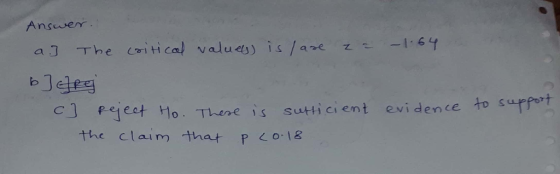 Answer.
a] The critical value(s) is/are z = -1.64
b]
c] Reject Ho. There is sufficient evidence to support
the claim that p <0.18